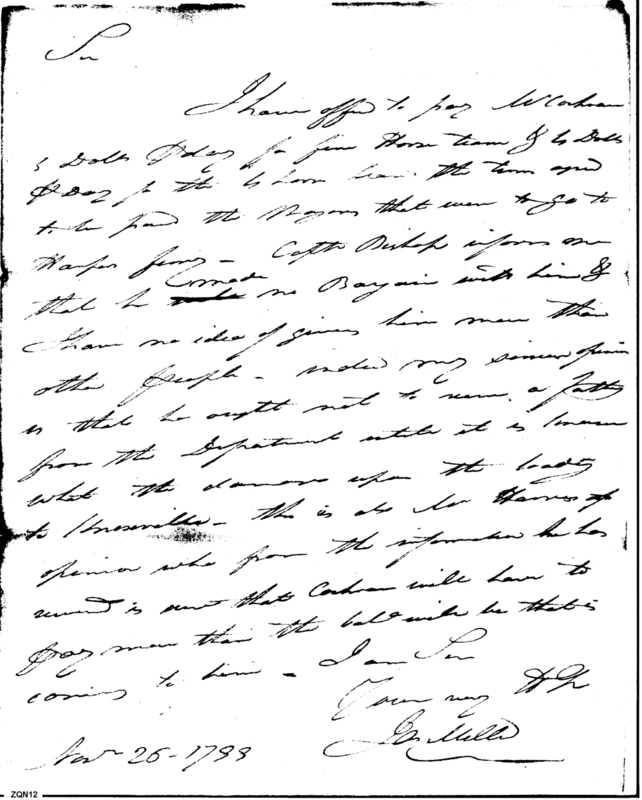 Sir
I have offerd to pay Mr Cochran
5 Dolls ℔ day for five Horse team & 6 Dolls
℔ Day for the 6 horse team the term agd
to be paid the Wagons that were to go to
Harpers ferry - Captn Bishop informs me
that he made no Bargain with him &
I have no idea of giving him more than
other people - indeed my sincere opinion
is that he ought not to receive a farthg
from the Department untile it is known
what the damages upon the loading
to Knoxville - this is also Mr Harris's
opinion who from the information he has
received is sure that Cochran will have to
pay more than the bale will be that is
coming to him - I am Sir
Your very H St
Jas Miller
Novr 26 - 1799
ZQN12